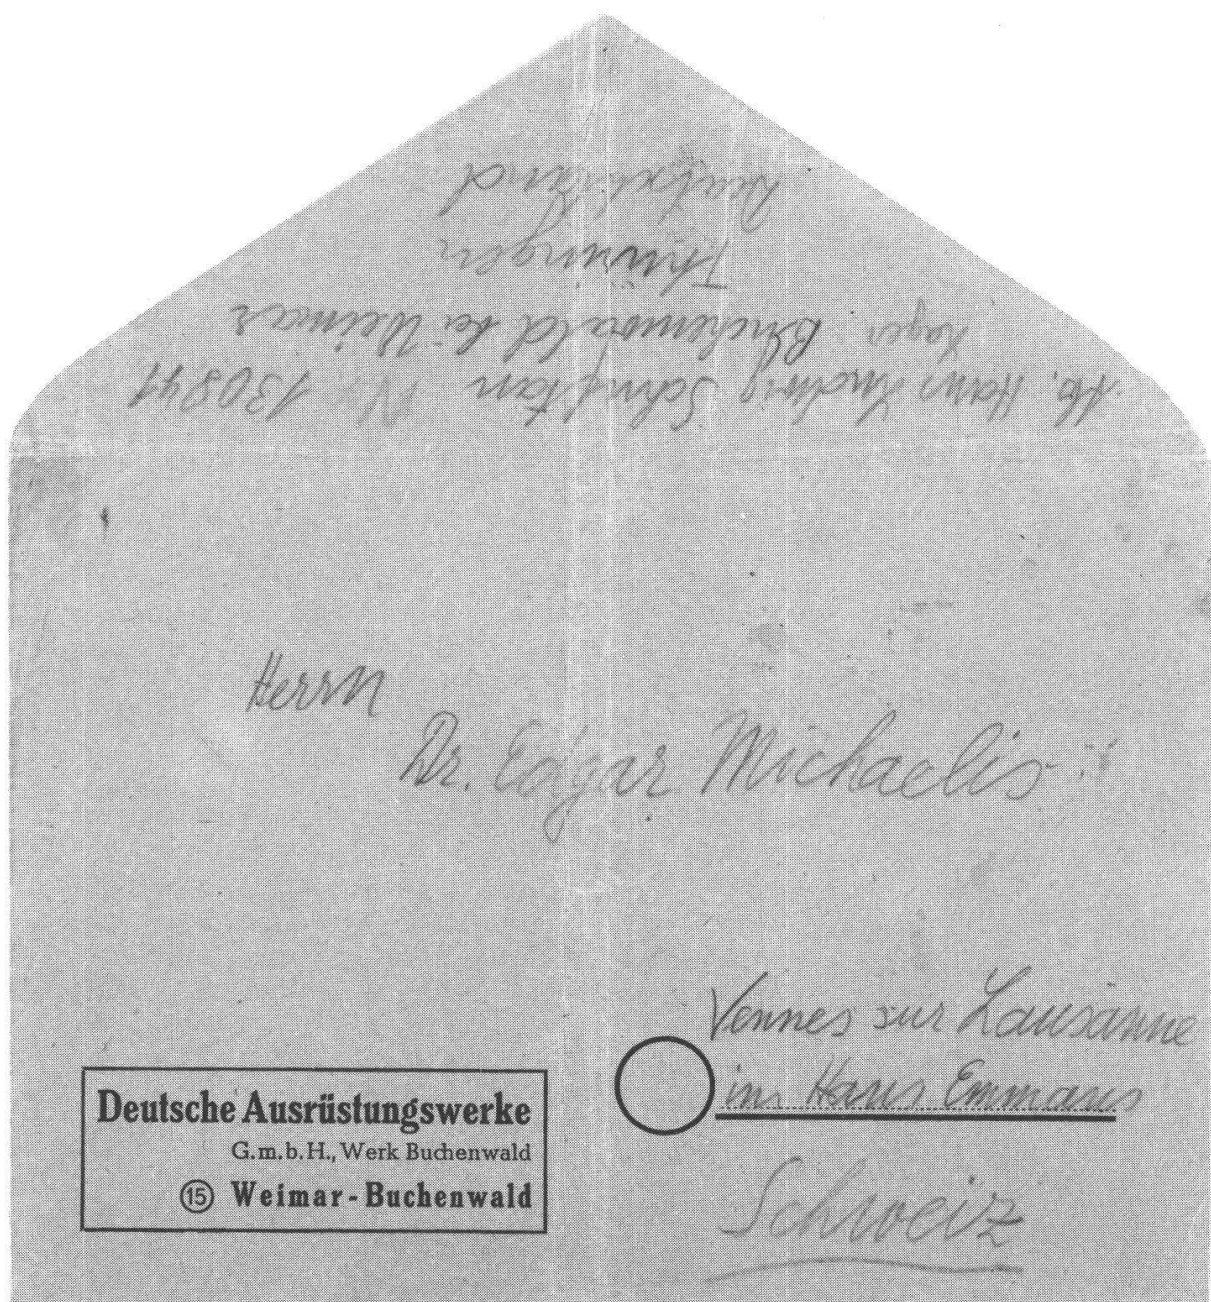 Hans Ludwig Nr 130841
Lager Buchenwald bei Weimar
Thüringen
Deutschland
Herrn
Dr. Edgar Michaelis
Vennes sur Lausanne
im Haus Emmaus
Schweiz
Deutsche Ausrüstungswerke
G.m.b.H., Werk Buchenwald
15 Weimar-Buchenwald